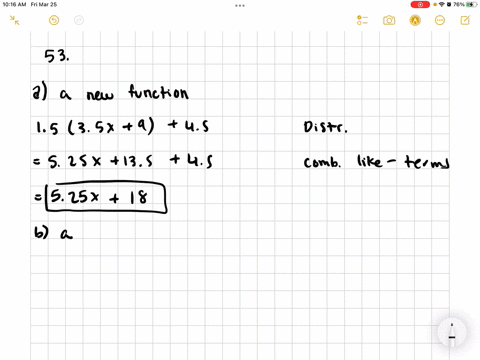 10:16 AM Fri Mar 25
76%
53.
a) a new function
1.5 (3.5x + 9) + 4.5 Distr.
= 5.25x + 13.5 + 4.5 comb. like-terms
= 5.25x + 18
b) a